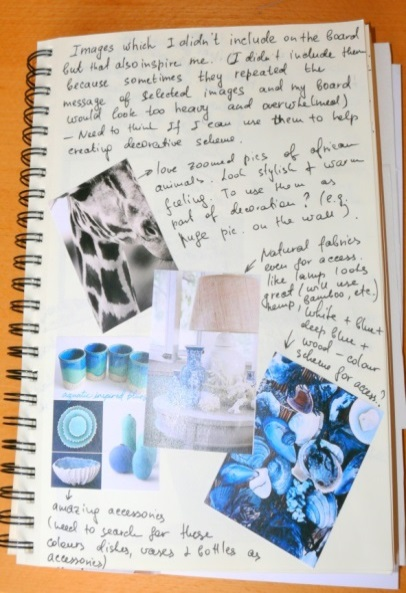 Images which I didn't include on the Board
but that also inspire me. (I didn't include them
because sometimes they repeated the
message of selected images and my Board
would look too heavy and overwhelmed)
- Need to think If I can use them to help
creating decorative scheme.
love zoomed pics of african
animals. Look stylish & warm
feeling. To use them as
part of decoration? (e.g.
huge pic. on the wall).
Natural fabrics
even for access.
like lamp looks
great (will use
hemp, bamboo, etc.)
White + blue +
deep blue +
wood - colour
scheme for access?
aquatic-inspired
amazing accessories
(need to search for these
colours dishes, vases & bottles as
accessories)